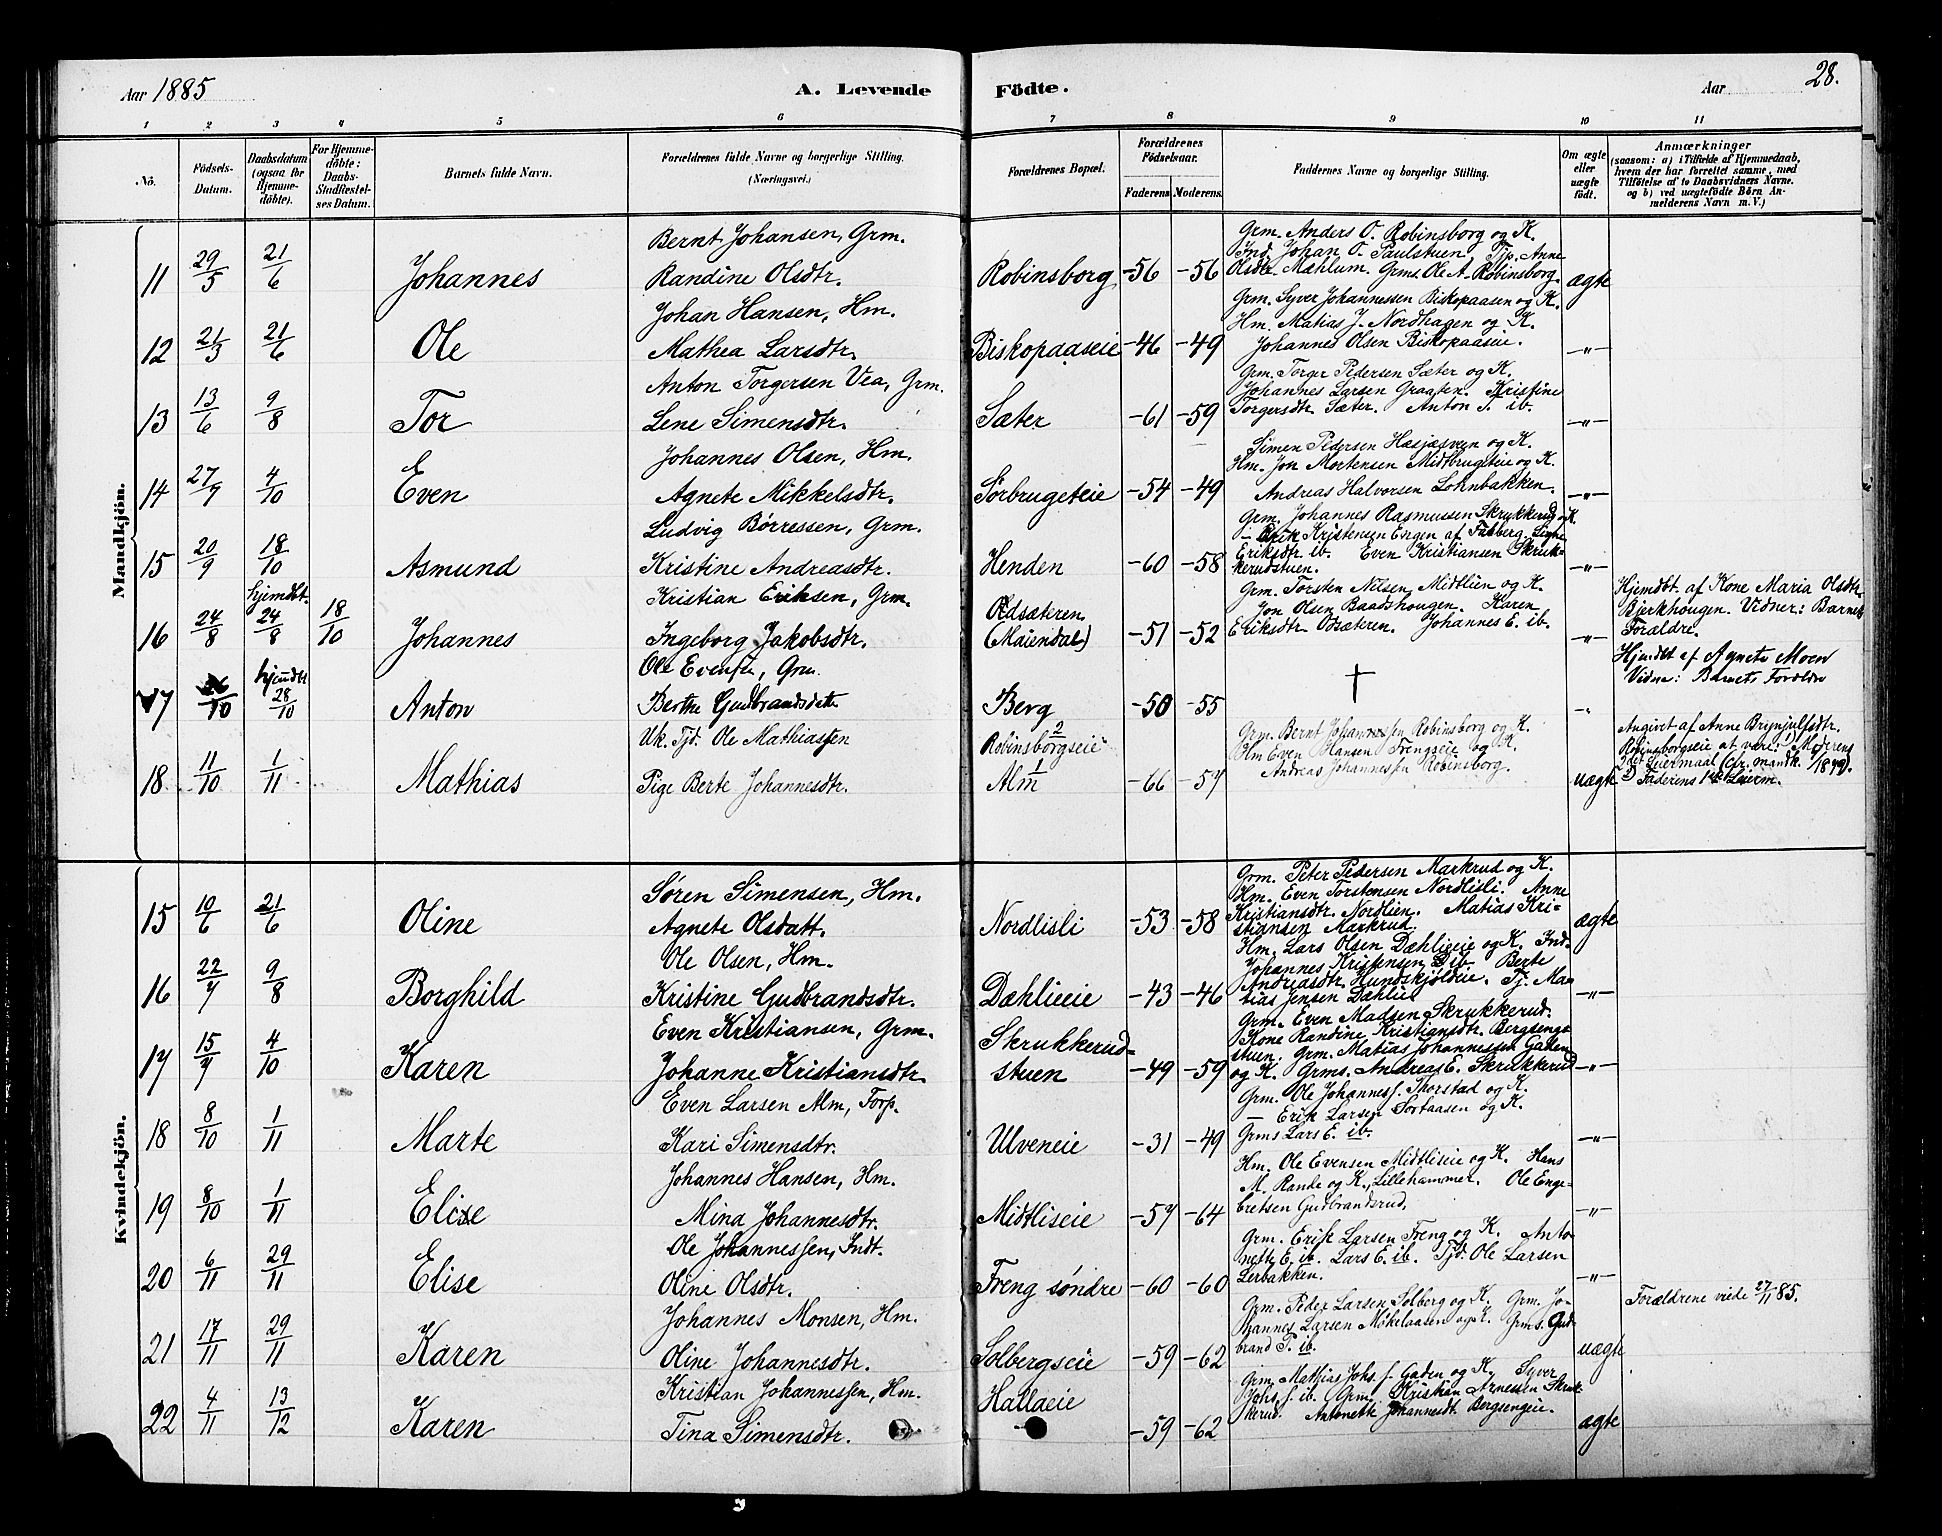 Aar 1885
A. Levende
Födte.
Aar
28.
1 2 3 4 5 6 7 8 9 10 11
No.
Födsels-
Datum.
Daabsdatum
(ogsaa for
Hjemme-
döbte).
For Hjemme-
döbte:
Daabs-
Stadfæstel-
ses Datum.
Barnets fulde Navn.
Forældrenes fulde Navne og borgerlige Stilling.
(Næringsvei.)
Forældrenes Bopæl.
Forældrenes
Födselsaar.
Faderens. Moderens.
Faddernes Navne og borgerlige Stilling.
Om ægte
eller
uægte
födt.
Anmærkninger
(saasom: a) i Tilfælde af Hjemmedaab,
hvem der har forrettet samme, med
Tilföielse af to Daabsvidners Navne.
og b) ved uægtefödte Börn An-
melderens Navn m. V.)
Mandkjön.
11 29/5 21/6 Johannes
Bernt Johansen, Grm.
Randine Olsdtr.
Robinsborg -56 -56
Grm. Anders O. Robinsborg og K.
Ind. Johan O. Paulstuen. Tjp. Anne
Olsdtr. Mæhlum. Grms. Ole A. Robinsborg.
ægte
12 21/3 21/6 Ole
Johan Hansen, Hm.
Mathea Larsdtr.
Biskopaaseie -46 -49
Grm. Syver Johannessen Biskopaasen og K.
Hm. Matias J. Nordhagen og K.
Johannes Olsen Biskopaaseie.
-"-
13 13/6 9/8 Tor
Anton Torgersen Vea, Grm.
Lene Simensdtr.
Sæter -61 -59
Grm. Torger Pedersen Sæter og K.
Johannes Larsen Graaten. Kristine
Torgersdtr. Sæter. Anton T. ib.
-"-
14 27/7 4/10 Even
Johannes Olsen, Hm.
Agnete Mikkelsdtr.
Sörbrugeteie -54 -49
Simen Pedersen Hasjasveen og K.
Hm. Jon Mortensen Midtbrugeteie og K.
Andreas Halvorsen Lohnbakken.
-"-
15 20/9 18/10 Asmund
Ludvig Börressen, Grm.
Kristine Andreasdtr.
Henden -60 -58
Grm. Johannes Rasmussen Skrukkerud og K.
- Erik Kristensen Engen af Faaberg. Signe
Eriksdtr. ib. Even Kristiansen Skruk-
kerudstuen.
-"-
16 24/8 hjemdbt. 24/8 18/10 Johannes
Kristian Eriksen, Grm.
Ingeborg Jakobsdtr.
Odsæteren
(Maiendal) -51 -52
Grm. Torsten Nilsen Midtlien og K.
Jon Olsen Baadshougen. Karen
Eriksdtr. Odsæteren. Johannes E. ib.
-"-
Hjemdbt. af Kone Maria Olsdtr.
Bjerkhougen. Vidner: Barnets
Forældre.
17 /10 hjemdbt 28/10 Anton
Ole Evensen, Grm.
Berthe Gudbrandsdatter
Berg -50 -55
†
-"-
Hjemdbt af Agnete Moen
Vidner: Barnets Forældre
18 11/10 1/11 Mathias
Uk. Tjd. Ole Mathiassen
Pige Berte Johannesdtr.
2
Robinsborgseie
1
Alm -66 -57
Grm. Bernt Johannessen Robinsborg og K.
Hm Even Hansen Frengseie og K.
Andreas Johannessen Robinsborg.
uægte
Angivet af Anne Brynjulfsdtr.
Robinsborgseie at være: 1) Moderens
2det Leiermaal (cfr. mandk. /1879).
2) Faderens 1ste Leierm.
Kvindekjön.
15 10/6 21/6 Oline
Sören Simensen, Hm.
Agnete Olsdatt.
Nordlisli -53 -58
Grm. Peter Pedersen Markrud og K.
Hm. Even Torstensen Nordlisli. Anne
Kristiansdtr. Nordlien. Matias Kri-
stiansen Markrud.
ægte
16 22/7 9/8 Borghild
Ole Olsen, Hm.
Kristine Gudbrandsdtr.
Dæhlieeie -43 -46
Hm. Lars Olsen Dæhlieeie og K. Ind.
Johannes Kristensen ib. Berte
Andreasdtr. Hundskjöldeie. Tj. Ma-
tias Jensen Dæhlie
-"-
17 15/7 4/10 Karen
Even Kristiansen, Grm.
Johanne Kristiansdtr.
Skrukkerud-
stuen -49 -59
Grm. Even Madsen Skrukkerud.
Kone Randine Kristiansdtr. Bergsengs
stuen. Grm. Matias Johannessen Gaden
og K. Grms. Andreas E. Skrukkerud
-"-
18 8/10 1/11 Marte
Even Larsen Alm, Forp.
Kari Simensdtr.
Ulveneie -31 -49
Grm. Ole Johanness. Thorstad og K.
- Erik Larsen Sortaasen og K.
Grms Lars E. ib.
-"-
19 8/10 1/11 Elise
Johannes Hansen, Hm.
Mina Johannesdtr.
Midtliseie -57 -64
Hm. Ole Evensen Midtliseie og K. Hans
M. Rande og K., Lillehammer. Ole Enge-
bretsen Gudbrandsrud.
-"-
20 6/11 29/11 Elise
Ole Johannessen, Indt.
Oline Olsdtr.
Freng söndre -60 -60
Grm. Erik Larsen Freng og K. Anto
nette E. ib. Lars E. ib. Tjd. Ole Larsen
Lerbakken.
-"-
21 17/11 29/11 Karen
Johannes Monsen, Hm.
Oline Johannesdtr.
Solbergseie -59 -62
Grm. Peder Larsen Solberg og K. Grm. Jo-
hannes Larsen Mökelaasen og K. Grms. Gud-
brand P. ib.
uægte
Forældrene viede 27/11 85.
22 4/11 13/12 Karen
Kristian Johannessen, Hm.
Tina Simensdtr.
Hallaeie -59 -62
Grm. Mathias Johs. s. Gaden og K. Syver
Johs. s. ib. Grm. Kristian Arnessen Skruk-
kerud. Antonette Johannesdt. Bergsengeie.
ægte